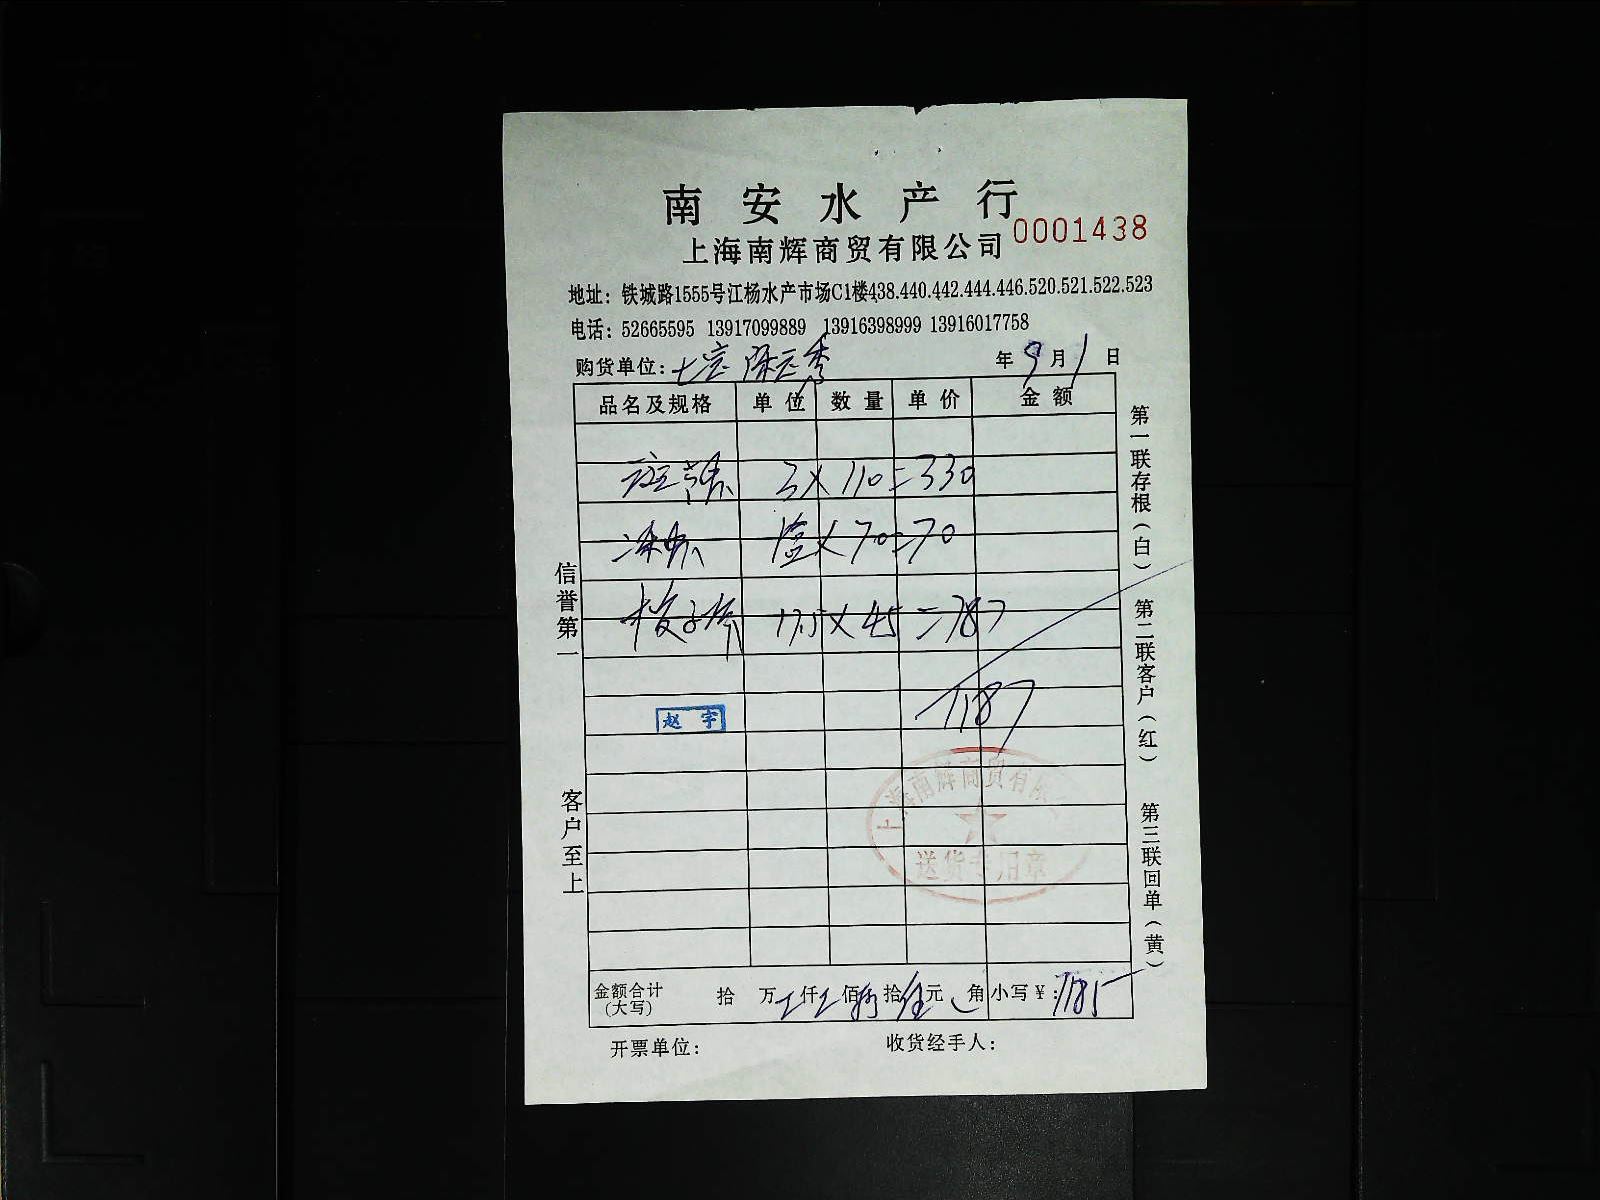 南安水产行
上海南辉商贸有限公司 0001438
地址：铁城路1555号江杨水产市场C1楼438.440.442.444.446.520.521.522.523
电话：52665595 13917099889 13916398999 13916017758
购货单位：七宝 年 9 月 1 日
品名及规格 单位 数量 单价 金额
3×110=330
×70=70
梭子 17.5×45=787
1187
赵宇
上海南辉商贸有限
送货专用章
金额合计(大写) 拾 万 仟 佰 拾 元 角 小写￥：1185
开票单位： 收货经手人：
信誉第一
客户至上
第一联存根(白)
第二联客户(红)
第三联回单(黄)